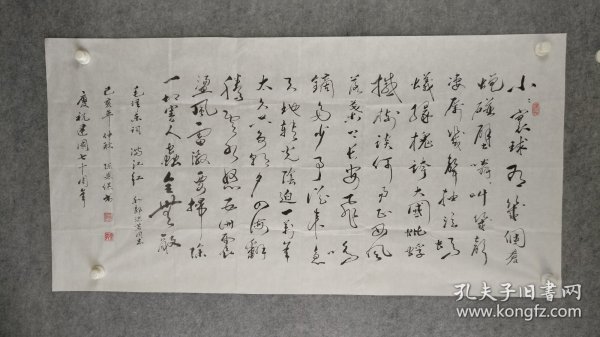 小小寰球有几個苍
蝇碰壁嗡嗡叫几声
凄厉几声抽泣蚂
蚁缘槐誇大國蚍蜉
撼樹談何易正西風
落葉下长安飛鸣
镝多少事從来急
天地转光陰迫一萬年
太久只争朝夕四海翻
腾雲水怒五洲震
盪風雷激要掃除
一切害人蟲全無敵
毛澤東詞 满江红 和郭沫若同志
己亥年仲秋
慶祝建國七十周年
孔夫子旧书网
www.kongfz.com